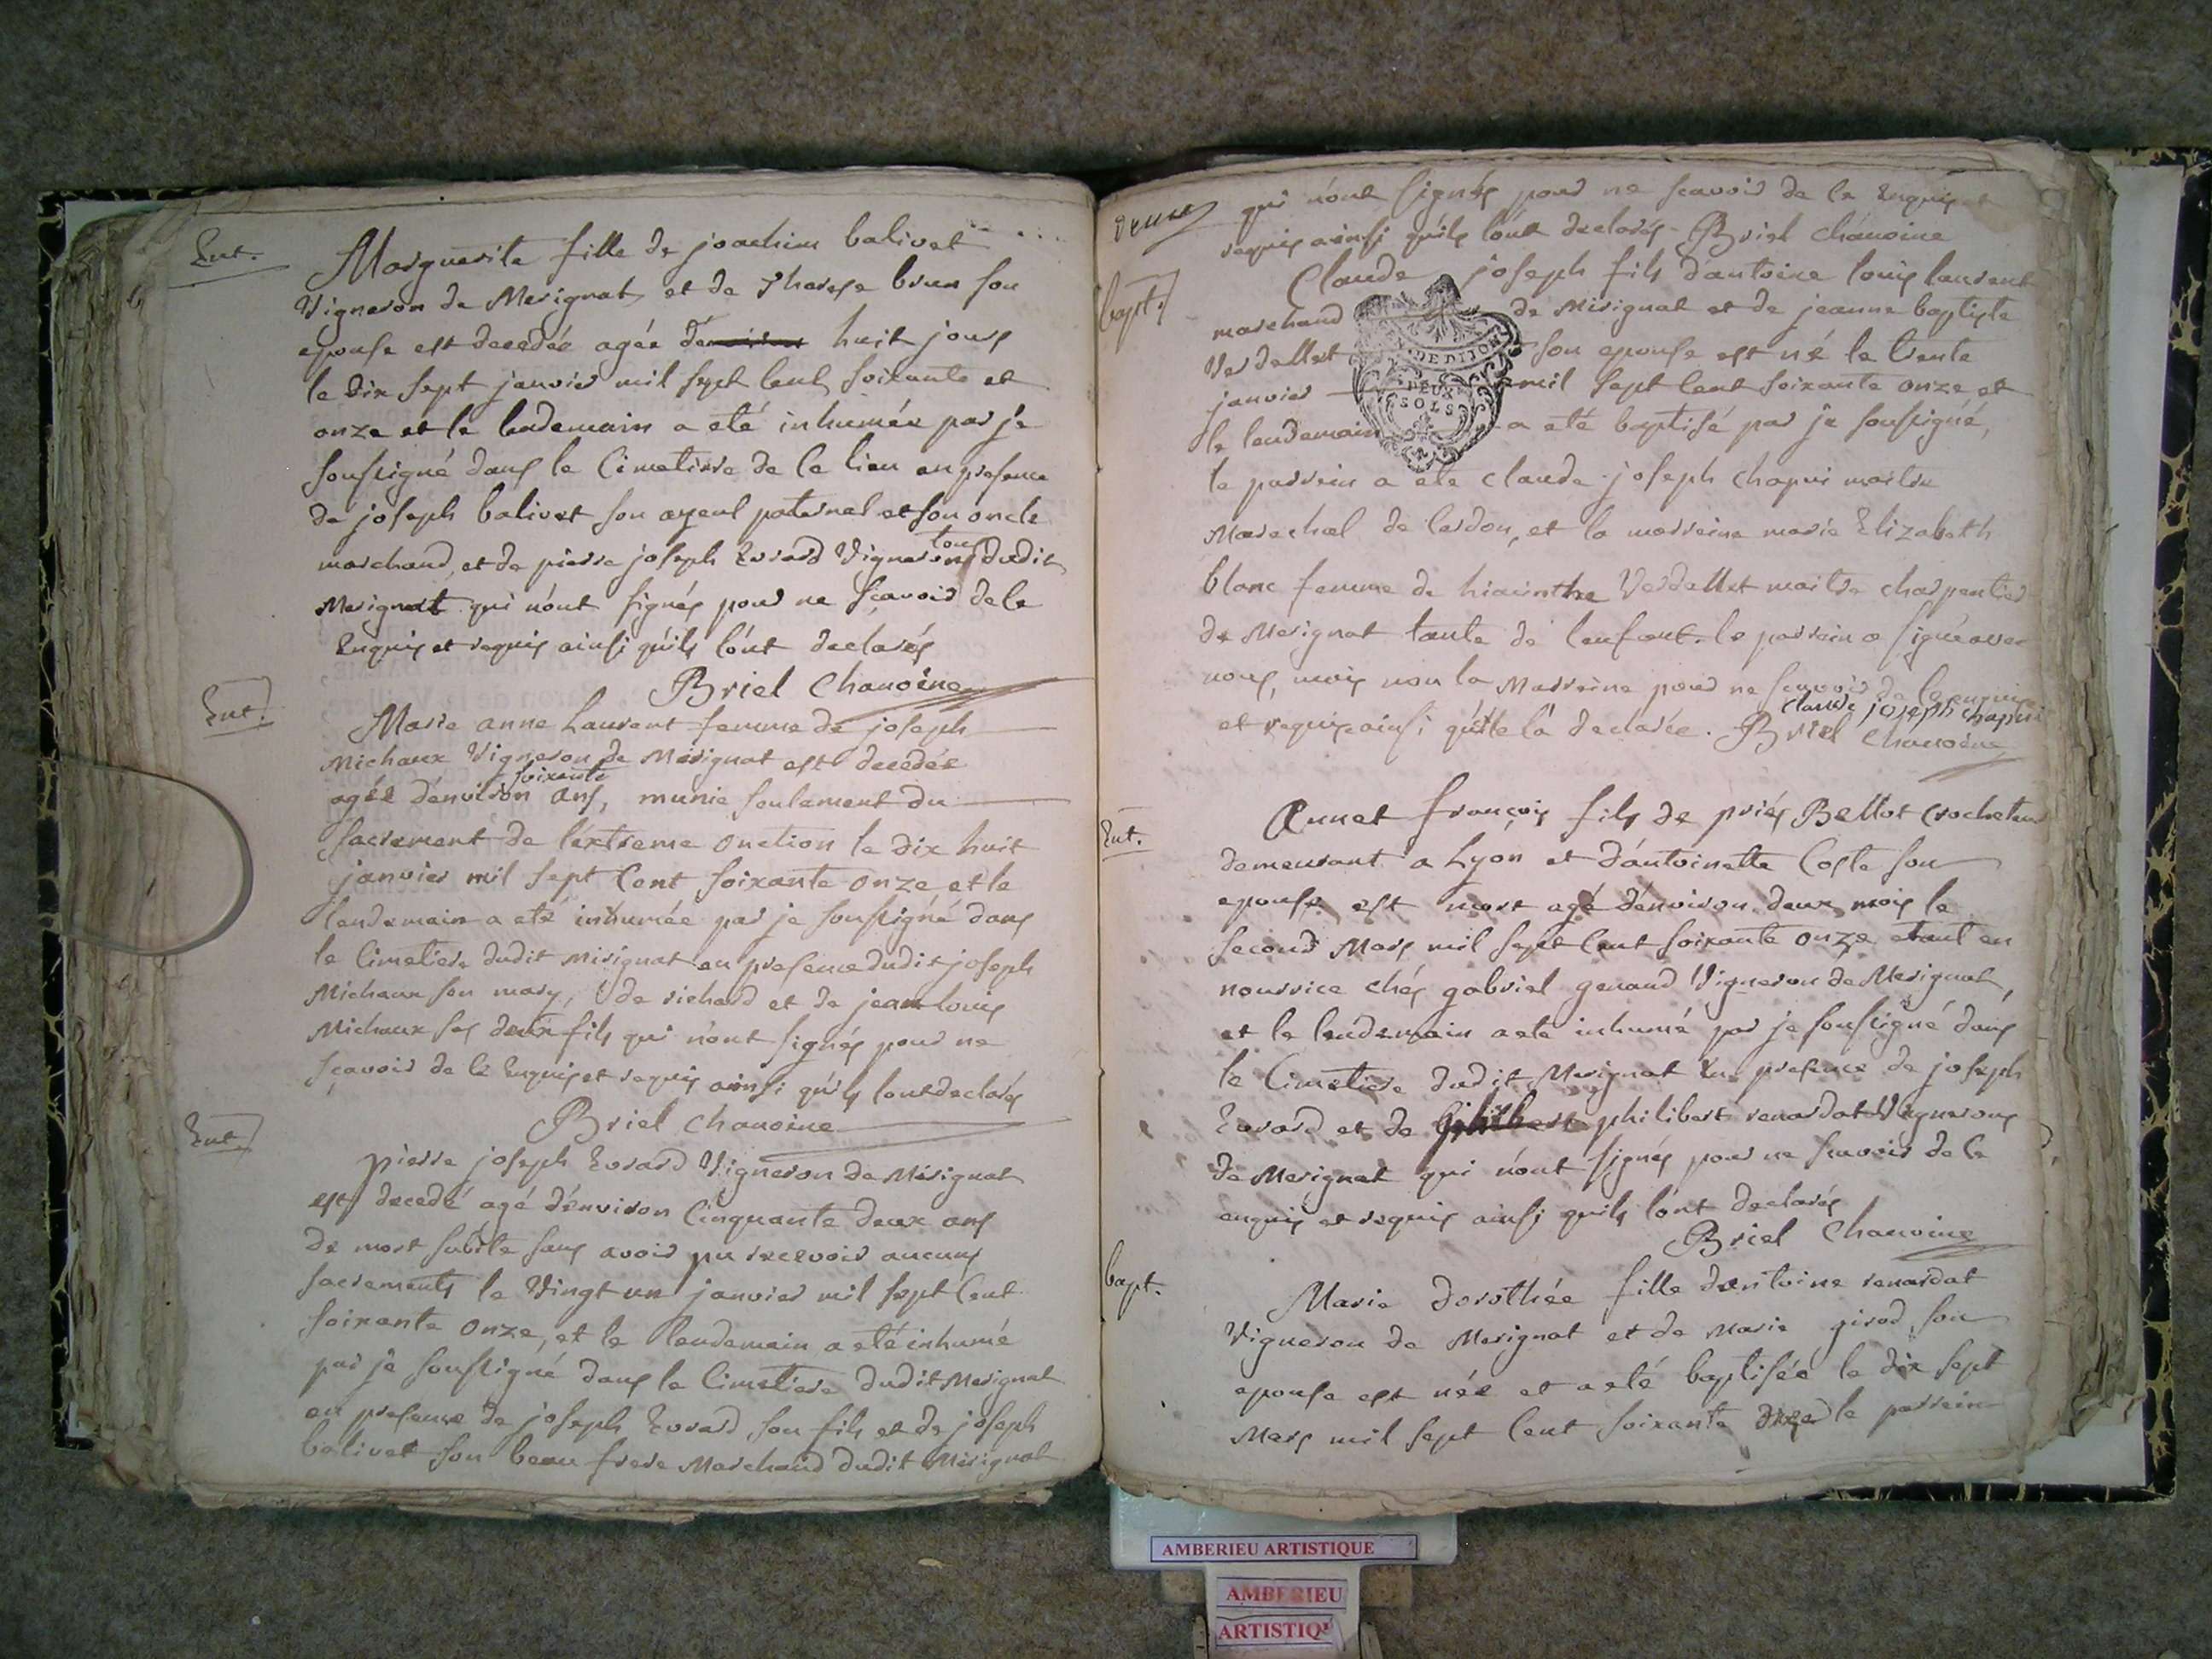 Ent.
Marguerite fille de joachim balivet
Vigneron de Merignat, et de Tharese brun son
epouse est decedée agée de huit jours
le dix sept janvier mil sept cent soixante et
onze et le lendemain a eté inhumée par je
soussigné dans le Cimetiere de ce lieu en presence
de joseph balivet son ayeul paternel et son oncle
marchand, et de pierre joseph Evrard Vignerons tous dudit
Merignat qui n'ont signés pour ne sçavoir de le
Enquis et requis ainsi qu'ils l'ont declarés
Briel Chanoine
Ent.
Marie anne Laurent femme de joseph
Michaux Vigneron de Mérignat est decédée
agée d'environ soixante ans, munie seulement du
sacrement de l'extreme onction le dix huit
janvier mil sept Cent soixante onze et le
lendemain a eté inhumée par je soussigné dans
le Cimetiere dudit Mérignat en presence dudit joseph
Michaux son mary, de richard et de jean louis
Michaux ses deux fils qui n'ont signés pour ne
sçavoir de le Enquis et requis ainsi qu'ils l'ont declarés
Briel Chanoine
Ent.
pierre joseph Evrard Vigneron de Mérignat
est decedé agé d'environ Cinquante deux ans
de mort subite sans avoir pu recevoir aucuns
sacrements le Vingt un janvier mil sept Cent
soixante onze, et le lendemain a eté inhumé
par je soussigné dans le Cimetiere dudit Merignat
en presence de joseph Evrard son fils et de joseph
balivet son beau frere Marchand dudit Mérignat
qui n'ont signés pour ne scavoir de le Enquis et
requis ainsi qu'ils l'ont declarés Briel Chanoine
bapt.
Claude joseph fils d'antoine louis laurent
marchand de Mérignat et de jeanne baptiste
Verdellet son epouse est né le trente
janvier mil sept Cent soixante onze et
le lendemain a eté baptisé par je soussigné,
le parrein a ete claude joseph Chapui maitre
Marechal de Cerdon, et la marreine marie Elizabeth
blanc femme de hiacinthe Verdellet maitre charpentier
de Merignat tante de l'enfant. le parrein a signé avec
nous, mais non la Marreine pour ne scavoir de le enquise
et requise ainsi qu'elle l'a declarée. Briel Chanoine
claude joseph chapui
DE DIJON
DEUX
SOLS
Ent.
Annet françois fils de priés Bellot crocheteur
demeurant a Lyon et d'antoinette Coste son
epouse est mort agé d'environ deux mois le
second Mars mil sept Cent soixante onze etant en
nourrice chés gabriel genaud Vigneron de Merignat,
et le lendemain a eté inhumé par je soussigné dans
le Cimetiere dudit Merignat En presence de joseph
Evrard et de philibert renardat Vignerons
de Merignat qui n'ont signés pour ne scavoir de le
enquis et requis ainsi qu'ils l'ont declarés
Briel Chanoine
bapt.
Marie dorothée fille d'antoine renardat
Vigneron de Merignat et de Marie girod son
epouse est née et a eté baptisée le dix sept
Mars mil sept Cent soixante onze le parrein
AMBERIEU ARTISTIQUE
AMBERIEU
ARTISTIQU